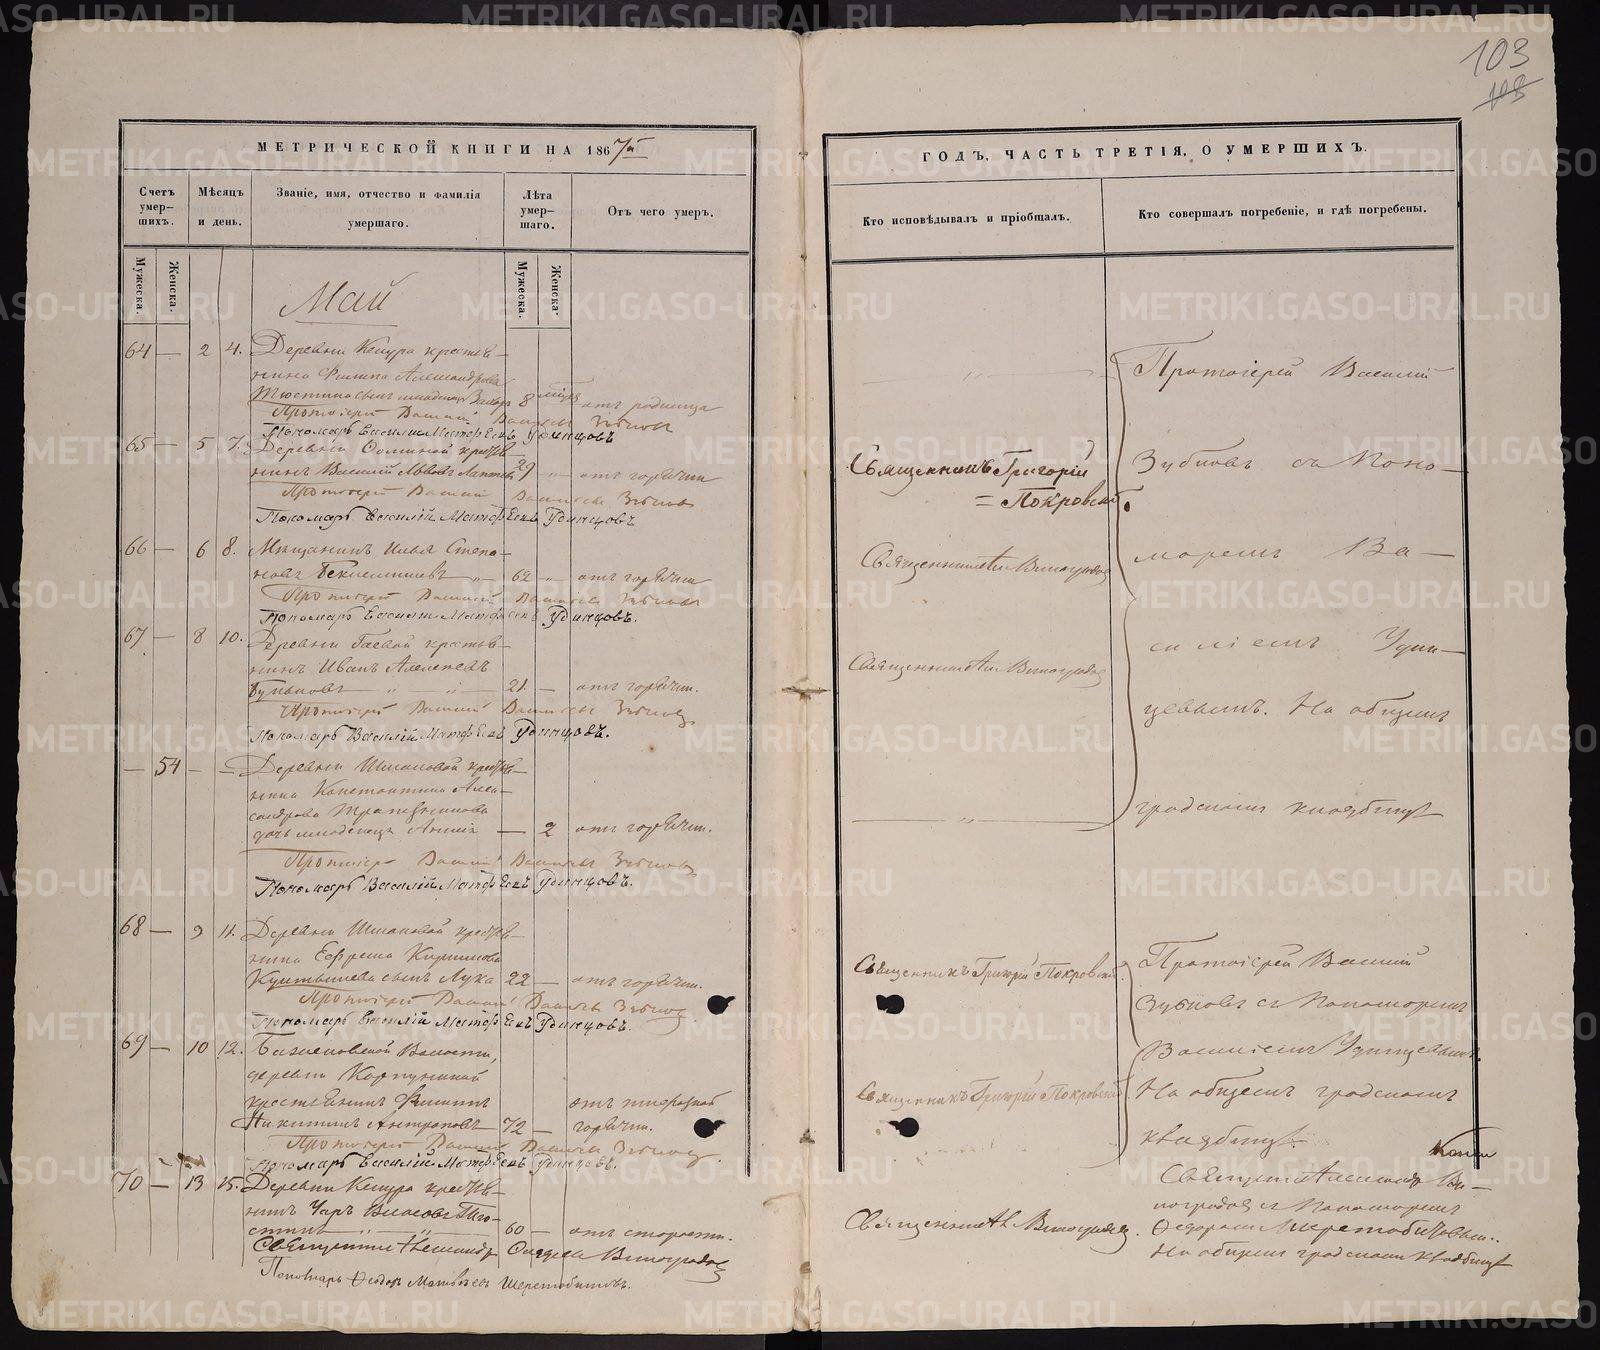 103
108
МЕТРИЧЕСКОЙ КНИГИ НА 1867й
Счетъ умер-шихъ.
Мѣсяцъ и день.
Званіе, имя, отчество и фамилія умершаго.
Лѣта умер-шаго.
Отъ чего умеръ.
Мужеска.
Женска.
Мужеска.
Женска.
Май
64 — 2 4. Деревни Кекура крестья-
нина Филипа Александрова
сынъ младенецъ 8 отъ родимца
Протоіерей Василій Васильевъ Зубковъ
Пономарь Василій Матфеевъ Удинцовъ
65 — 5 7. Деревни крестья-
нинъ Василій Львовъ 29 — отъ горячки
Протоіерей Василій Васильевъ Зубковъ
Пономарь Василій Матфеевъ Удинцовъ
66 — 6 8. Мѣщанинъ Илья Степа-
новъ — 62 — отъ горячки
Протоіерей Василій Васильевъ Зубковъ
Пономарь Василій Матфеевъ Удинцовъ.
67 — 8 10. Деревни Гаевой крестья-
нинъ Иванъ Алексѣевъ
— " — " — 21. — отъ горячки.
Протоіерей Василій Васильевъ Зубковъ
Пономарь Василій Матфеевъ Удинцовъ.
— 54 — — Деревни Шмаковой крестья-
нина Константина Алек-
сандрова Трапезникова
дочь младенецъ Анна — 2 отъ горячки.
Протоіерей Василій Васильевъ Зубковъ
Пономарь Василій Матфеевъ Удинцовъ.
68 — 9 11. Деревни Шмаковой крестья-
нина Ефрема
сынъ Лука 22 — отъ горячки.
Протоіерей Василій Васильевъ Зубковъ
Пономарь Василій Матфеевъ Удинцовъ.
69 — 10 12. Волости,
деревни
крестьянинъ Филиппъ отъ тифозной
Никитинъ Антроповъ — 72 — горячки.
Протоіерей Василій Васильевъ Зубковъ
Пономарь Василій Матфеевъ Удинцовъ.
70 — 13 15. Деревни Кекура крестья-
нинъ Власовъ
60 — отъ старости.
Священникъ Александръ Виноградовъ
Пономарь Феодоръ Матвѣевъ Шеретобитовъ.
ГОДЪ, ЧАСТЬ ТРЕТІЯ, О УМЕРШИХЪ.
Кто исповѣдывалъ и пріобщалъ.
Кто совершалъ погребеніе, и гдѣ погребены.
— " —
Священникъ Григорій
= Покровскій
Священникъ Ал Виноградовъ
Священникъ Ал Виноградовъ
— " —
Священникъ Григорій Покровскій
Священникъ Григорій Покровскій
Священникъ Ал Виноградовъ.
Протоіерей Василій
Зубковъ съ Поно-
маремъ Ва-
силіемъ Удин-
цевымъ. На общемъ
градскомъ кладбищѣ
Протоіерей Василій
Зубковъ съ Пономаремъ
Василіемъ Удинцевымъ.
На общемъ градскомъ
кладбищѣ.
Священникъ Александръ Ви-
ноградовъ съ Пономаремъ
Феодоромъ Шеретобитовымъ.
На общемъ градскомъ кладбищѣ
METRIKI.GASO-URAL.RU